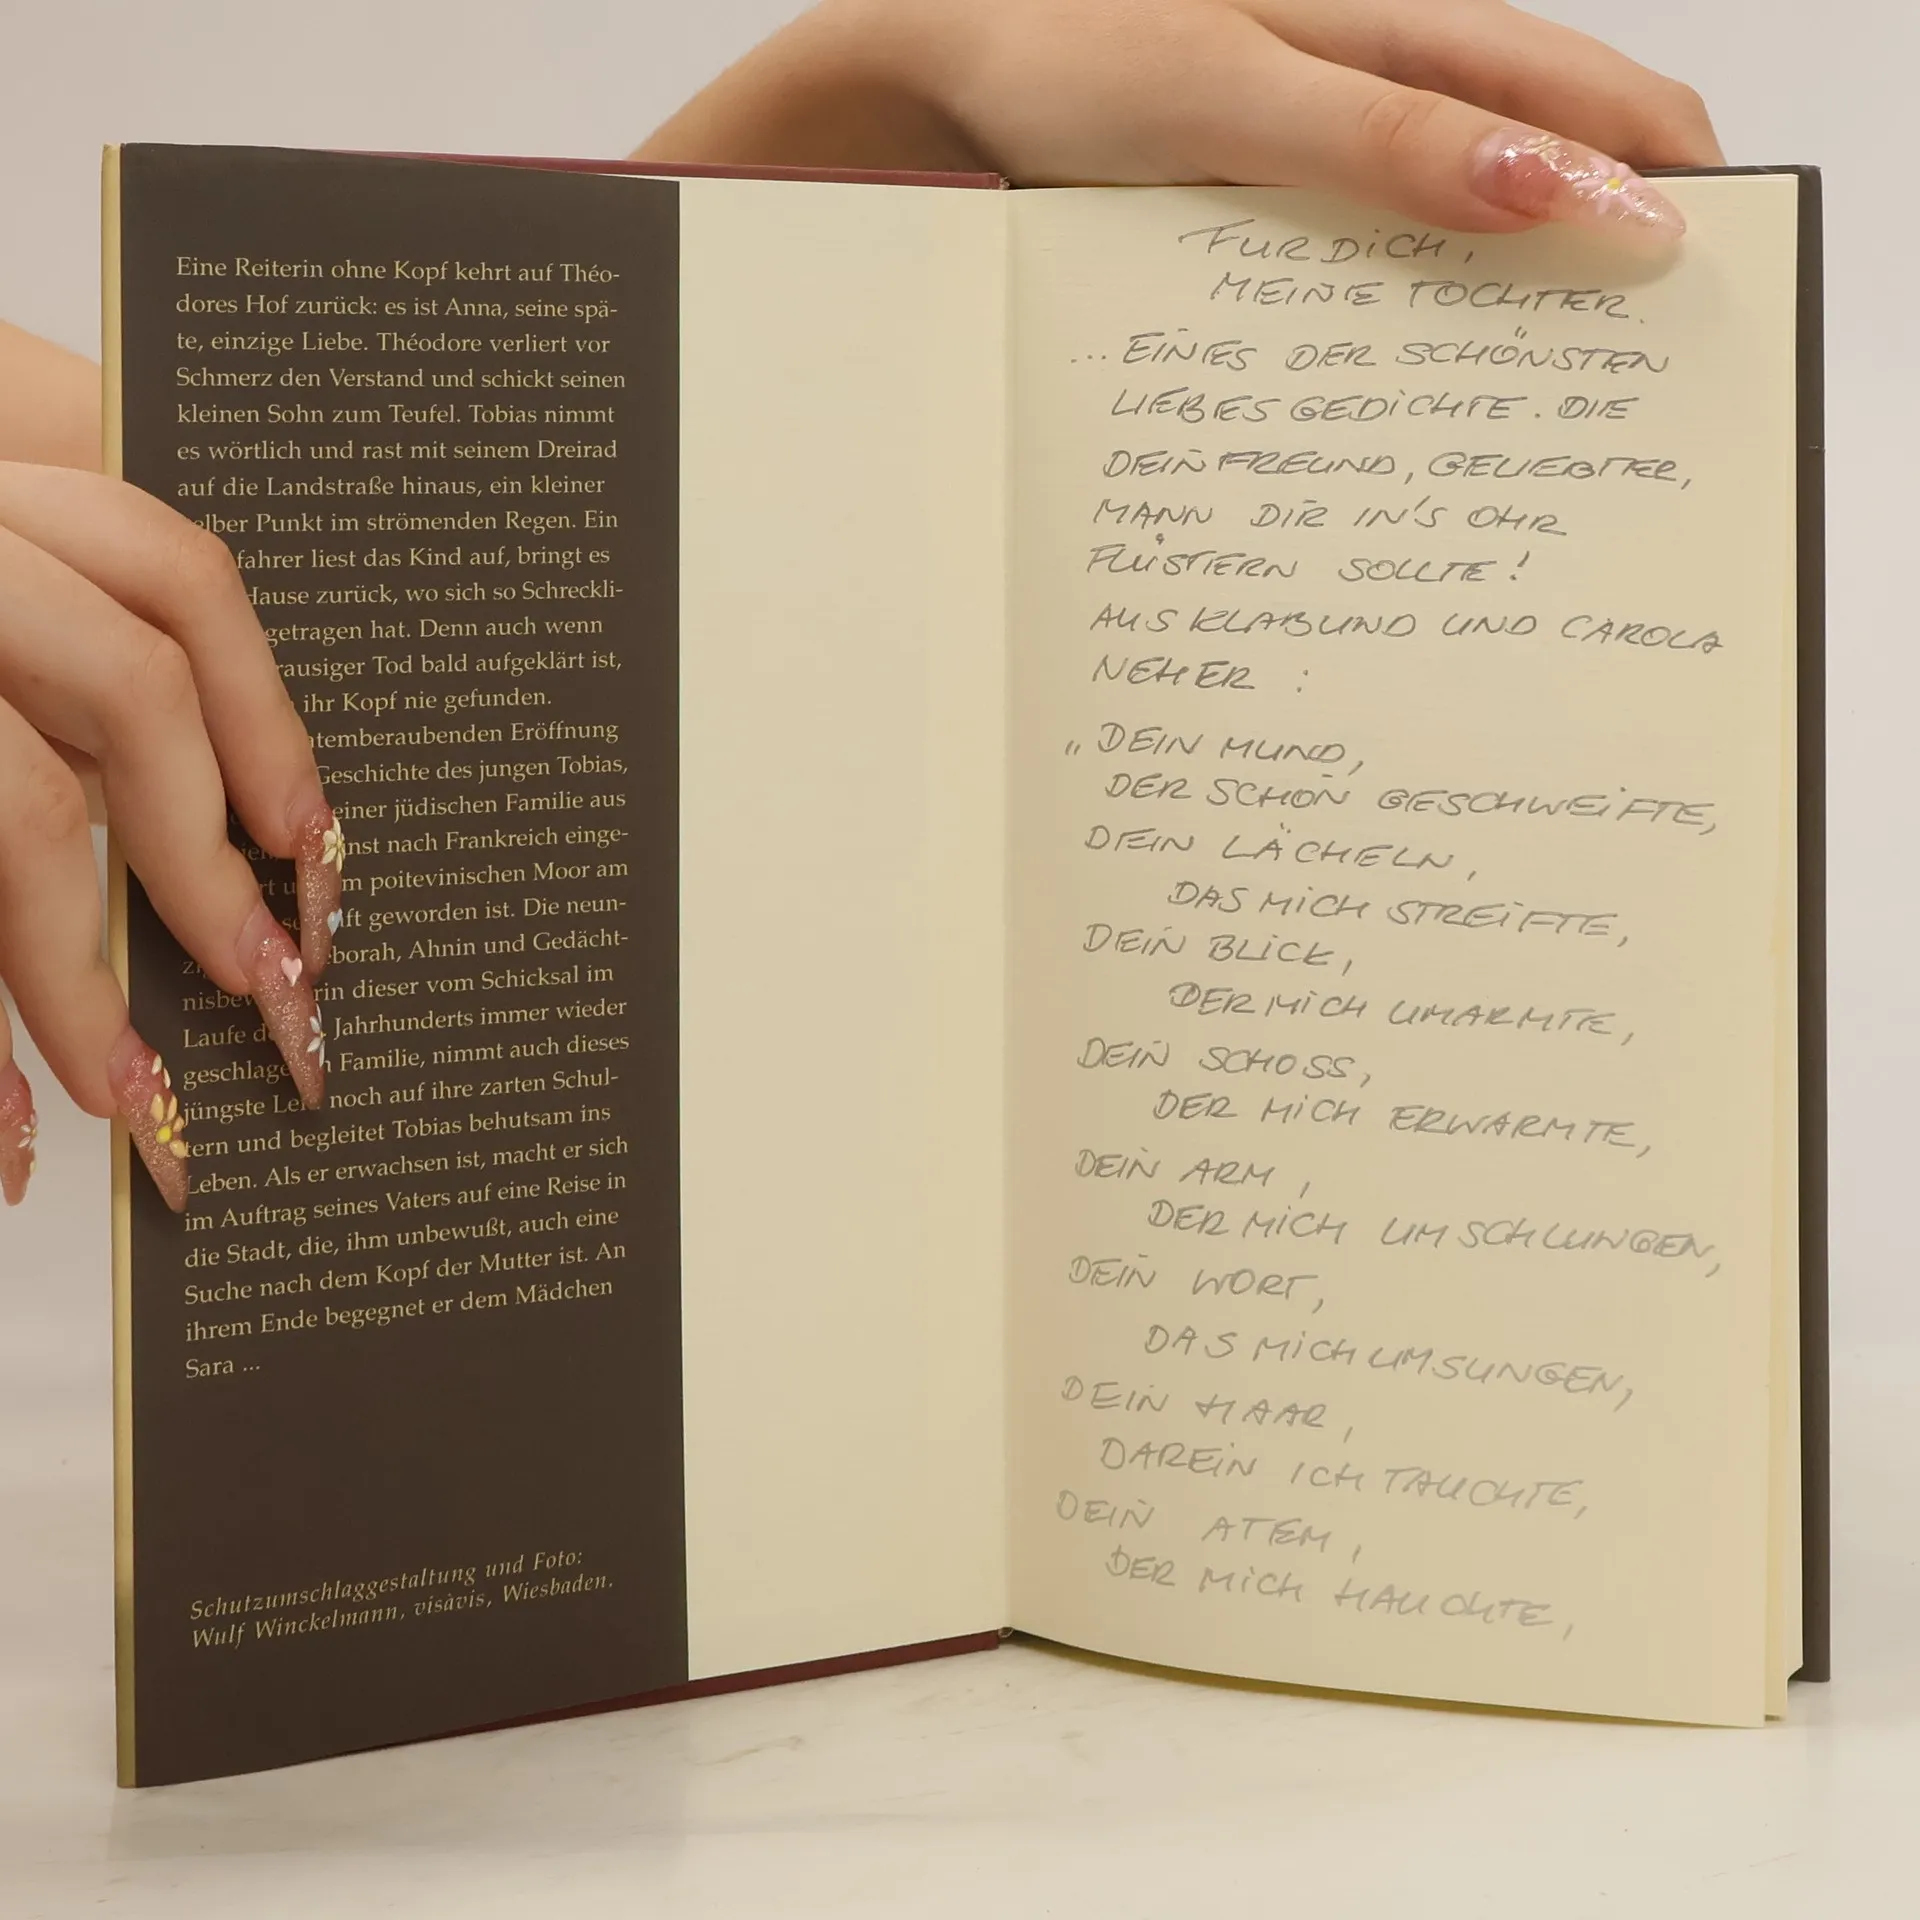 Eine Reiterin ohne Kopf kehrt auf Théo-
dores Hof zurück: es ist Anna, seine spä-
te, einzige Liebe. Théodore verliert vor
Schmerz den Verstand und schickt seinen
kleinen Sohn zum Teufel. Tobias nimmt
es wörtlich und rast mit seinem Dreirad
auf die Landstraße hinaus, ein kleiner
elber Punkt im strömenden Regen. Ein
fahrer liest das Kind auf, bringt es
Hause zurück, wo sich so Schreckli-
getragen hat. Denn auch wenn
rausiger Tod bald aufgeklärt ist,
ihr Kopf nie gefunden.
atemberaubenden Eröffnung
Geschichte des jungen Tobias,
einer jüdischen Familie aus
inst nach Frankreich einge-
m poitevinischen Moor am
ft geworden ist. Die neun-
borah, Ahnin und Gedächt-
nisbew rin dieser vom Schicksal im
Laufe d Jahrhunderts immer wieder
geschlage n Familie, nimmt auch dieses
jüngste Lei noch auf ihre zarten Schul-
tern und begleitet Tobias behutsam ins
Leben. Als er erwachsen ist, macht er sich
im Auftrag seines Vaters auf eine Reise in
die Stadt, die, ihm unbewußt, auch eine
Suche nach dem Kopf der Mutter ist. An
ihrem Ende begegnet er dem Mädchen
Sara ...
Schutzumschlaggestaltung und Foto:
Wulf Winckelmann, visàvis, Wiesbaden.
FUR DICH,
MEINE TOCHTER.
... EINES DER SCHÖNSTEN
LIEBESGEDICHTE. DIE
DEIN FREUND, GELIEBTER,
MANN DIR IN'S OHR
FLÜSTERN SOLLTE!
AUS KLABUND UND CAROLA
NEHER :
„DEIN MUND,
DER SCHÖN GESCHWEIFTE,
DEIN LÄCHELN,
DAS MICH STREIFTE,
DEIN BLICK,
DER MICH UMARMTE,
DEIN SCHOSS,
DER MICH ERWARMTE,
DEIN ARM,
DER MICH UMSCHLUNGEN,
DEIN WORT,
DAS MICH UMSUNGEN,
DEIN HAAR,
DAREIN ICH TAUCHTE,
DEIN ATEM,
DER MICH HAUCHTE,